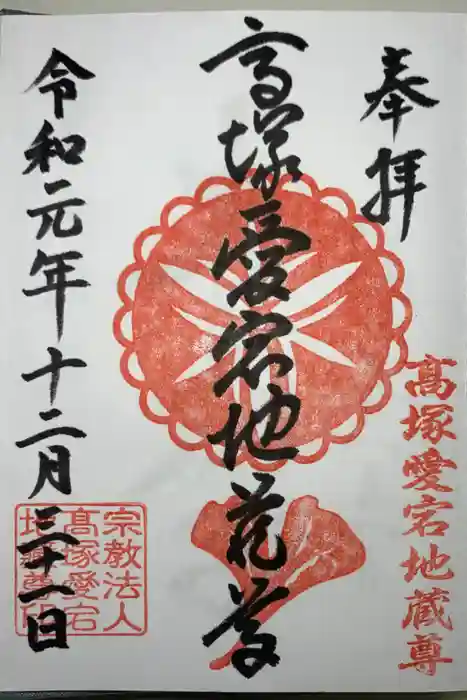 奉拝
髙塚愛宕地蔵尊
高塚愛宕地蔵尊
令和元年十二月三十一日
宗教法人
髙塚愛宕
地蔵尊印